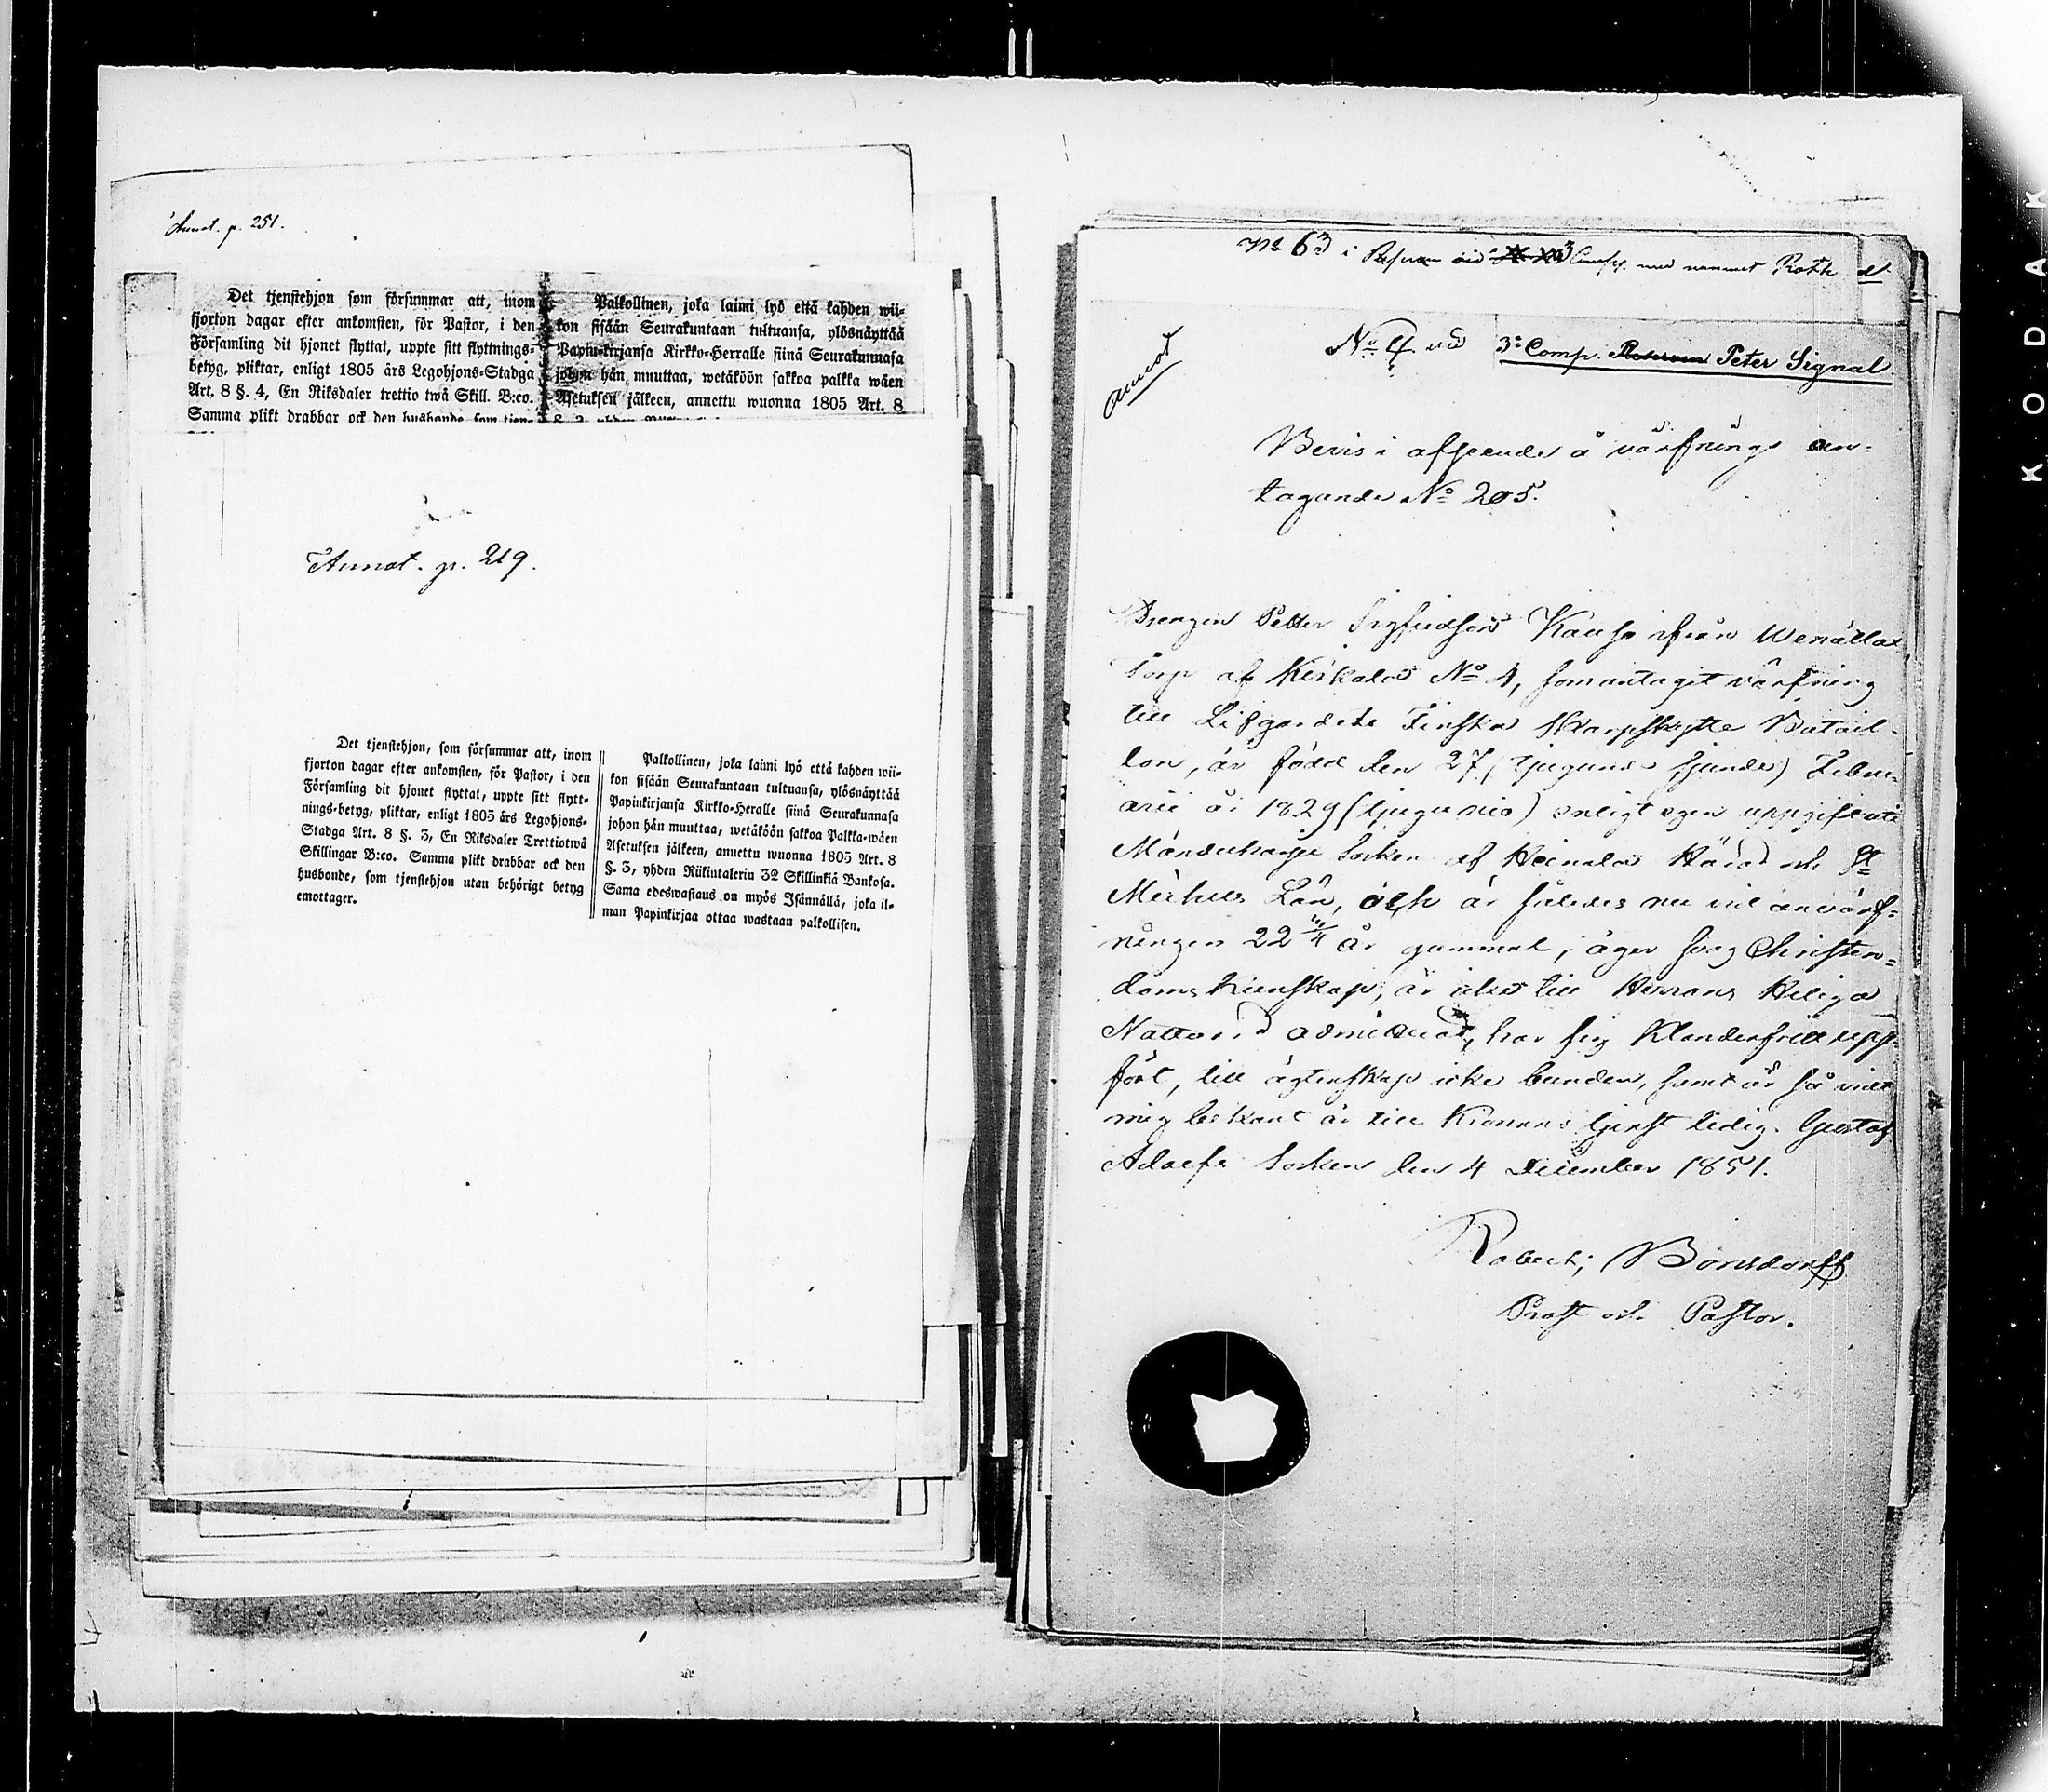 Annot. p. 251.
Det tjenstehjon som försummar att, inom
fjorton dagar efter ankomsten, för Pastor, i den
Församling dit hjonet flyttat, uppte sitt flyttnings-
betyg, pliktar, enligt 1805 års Legohjons-Stadga
Art. 8 §. 4, En Riksdaler trettio twå Skill. B:co.
Samma plikt drabbar ock den husbonde, som tjen-
Palkollinen, joka laimi lyö että kahden wii-
kon sisään Seurakuntaan tultuansa, ylösnäyttää
Papin-kirjansa Kirkko-Herralle siinä Seurakunnasa
johon hän muuttaa, wetäköön sakkoa palkka wäen
Asetuksen jälkeen, annettu wuonna 1805 Art. 8
Annot. p. 219.
Det tjenstehjon, som försummar att, inom
fjorton dagar efter ankomsten, för Pastor, i den
Församling dit hjonet flyttat, uppte sitt flytt-
nings-betyg, pliktar, enligt 1805 års Legohjons-
Stadga Art. 8 §. 3, En Riksdaler Trettiotwå
Skillingar B:co. Samma plikt drabbar ock den
husbonde, som tjenstehjon utan behörigt betyg
emottager.
Palkollinen, joka laimi lyö että kahden wii-
kon sisään Seurakuntaan tultuansa, ylösnäyttää
Papinkirjansa Kirkko-Heralle siinä Seurakunnasa
johon hän muuttaa, wetäköön sakkoa Palkka-wäen
Asetuksen jälkeen, annettu wuonna 1805 Art. 8
§. 3, yhden Riikintalerin 32 Skillinkiä Bankosa.
Sama edeswastaus on myös Isännällä, joka il-
man Papinkirjaa ottaa wastaan palkollisen.
No 63 i vid 3 Comp. med namnet Roth
annot
No 4 vid 3e Comp. Peter Signal
Bevis i afseende å värfnings an-
tagande No 205.
Drengen Petter Sigfridsson Kauho ifrån
Torp af Késkalas No 4, som antagit värfning
till Lifgardets Finska Skarpskytte Batail-
lon, är född den 27, (tjugunde sjunde) Febru-
arii år 1829 (tjugu nio) enligt egen uppgift uti
Mändeharju Socken af Heinola Härad och St
Michels Län, och är således nu vid anvärf-
ningen 22 år gammal, äger svag Christen-
doms kunskap, är icke till Herrans Heliga
Nattvard admitterad, har sig klanderfritt upp-
fört, till ägtenskap icke bunden, samt är så vidt
mig bekant är till Kronans tjenst ledig. Gustaf
Adolfs Socken den 4 December 1851.
Robert; Bonsdorff
Prost och Pastor.